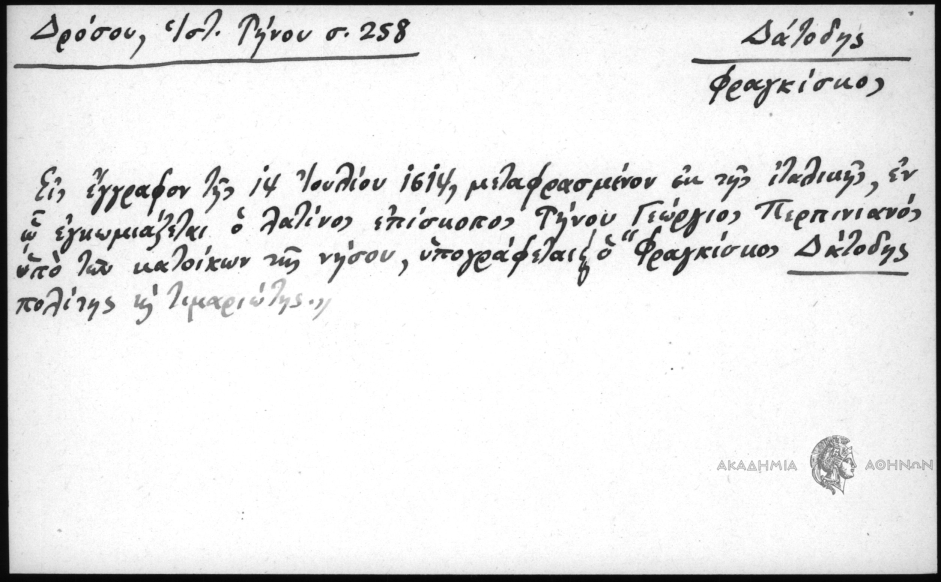 Δρόσου, Ἱστ. Τήνου σ. 258
Δάτοδης
Φραγκίσκος
Εἰς ἔγγραφον τῆς 14 Ἰουλίου 1614, μεταφρασμένον ἐκ τῆς ἰταλικῆς, ἐν
ᾧ ἐγκωμιάζεται ὁ λατῖνος ἐπίσκοπος Τήνου Γεώργιος Περπινιανός
ὑπὸ τῶν κατοίκων τῆς νήσου, ὑπογράφεται ὁ "Φραγκίσκος Δάτοδης
πολίτης κ τιμαριώτης."
ΑΚΑΔΗΜΙΑ ΑΘΗΝΩΝ